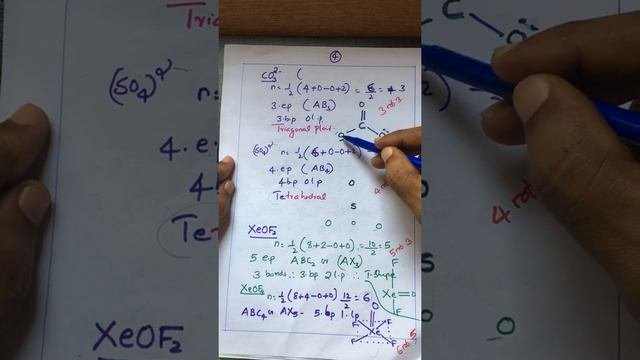 4
CO₃²⁻ (
n = 1/2 (4+0-0+2) = 6/2 = 3
3 ep (AB₃)
3 bp 0 l.p
Trigonal plan
O
C
O
3 not 3
(SO₄)²⁻ n = 1/2 (6+0-0+2)
4 ep (AB₄)
4 bp 0 l p
Tetrahedral
O
S
O O O
4 not
XeOF₂
n = 1/2 (8+2-0+0) = 10/2 = 5
5 ep ABC₂ or (AX₃)
3 bonds ∴ 3 bp 2 l.p ∴ T-Shape
5 not 3
F
Xe=O
F
XeOF₄
n = 1/2 (8+4-0+0) 12/2 = 6
ABC₄ or AX₅ - 5 bp 1 lp
O
F F
Xe
F F
6 not 5
(SO₄)²⁻
n
4.e
4
Te
XeOF₂
C
O
4 not
O